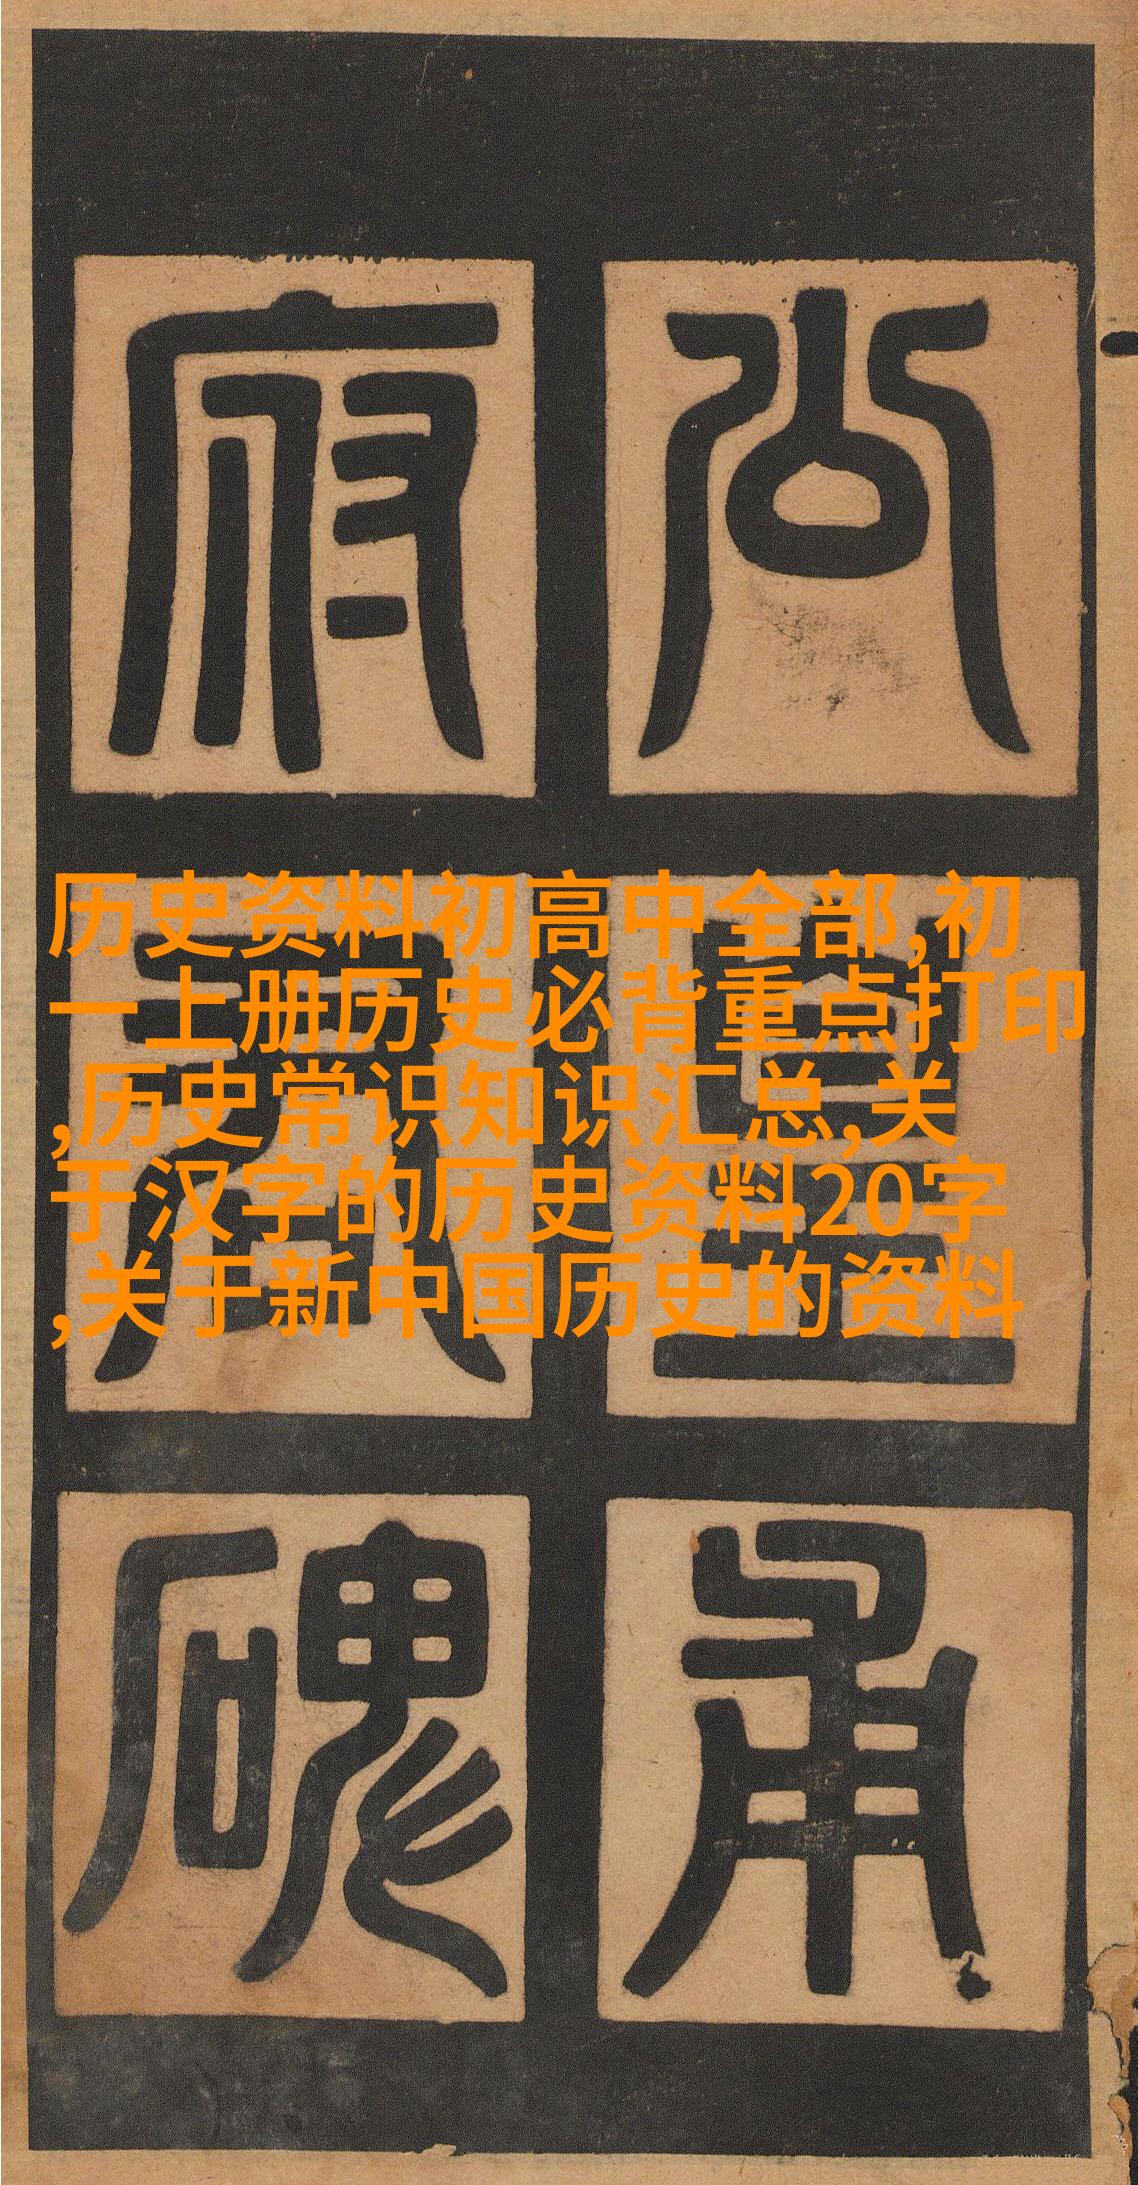 公皇甫
府君碑
历史资料初高中全部,初
一上册历史必背重点打印
,历史常识知识汇总,关
于汉字的历史资料20字
,关于新中国历史的资料